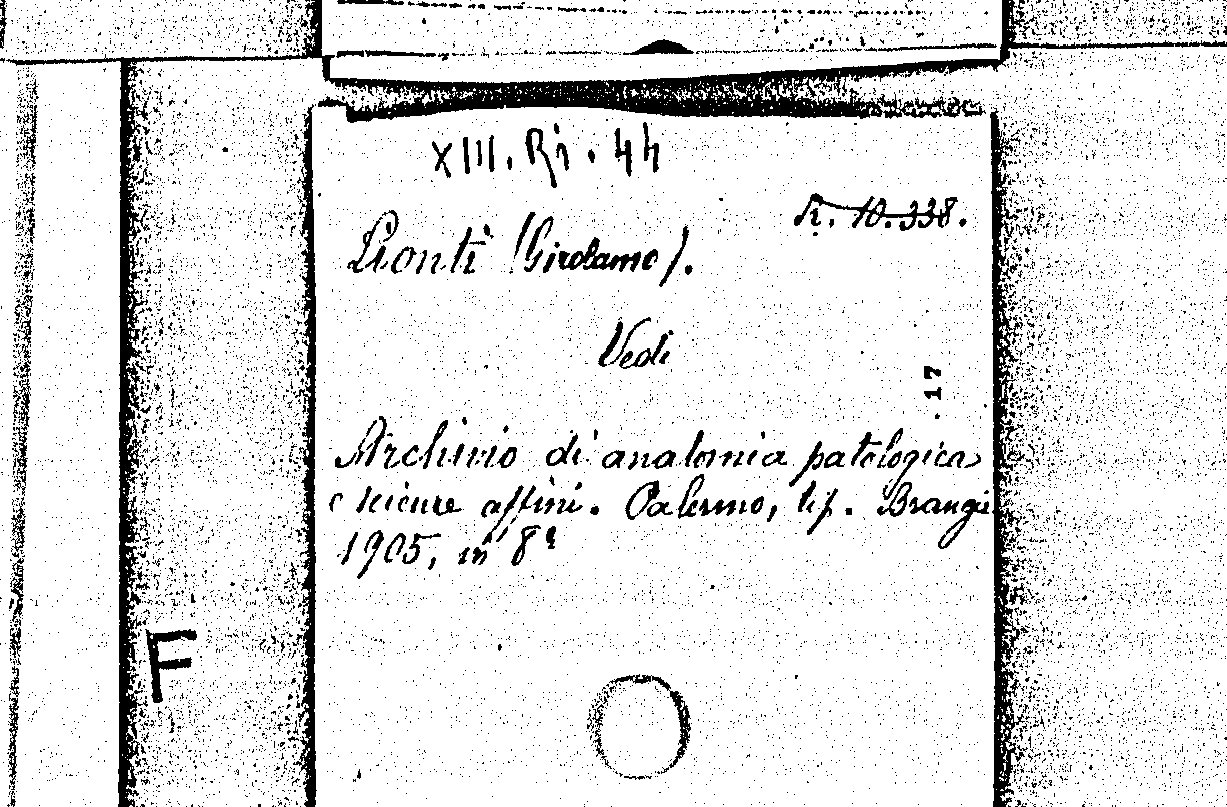 XIII. Ri. 44
R. 10.338.
Lionti (Girolamo).
Vedi
17
Archivio di anatomia patologica
e scienze affini. Palermo, tip. Brangi
1905, in 8º
F